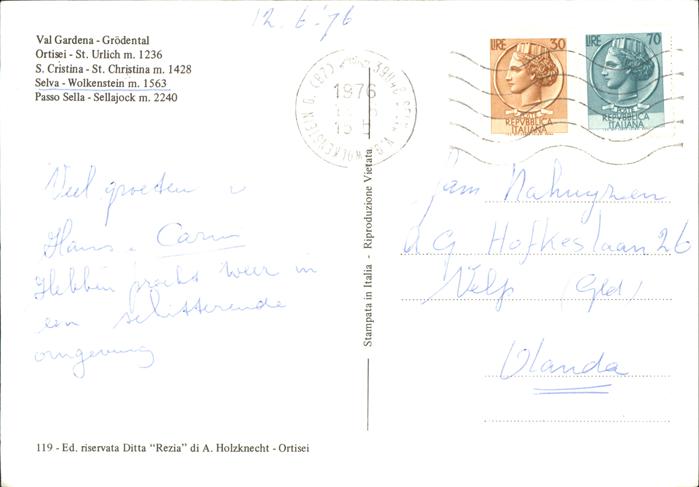 12.6.'76
Val Gardena - Grödental
Ortisei - St. Urlich m. 1236
S. Cristina - St. Christina m. 1428
Selva - Wolkenstein m. 1563
Passo Sella - Sellajock m. 2240
1976
LIRE 30
POSTE
REPVBBLICA
ITALIANA
LIRE 70
POSTE
REPVBBLICA
ITALIANA
Veel groeten v
Hans
Hebben weer in
een schitterende
omgeving
Stampata in Italia - Riproduzione Vietata
Fam
A G Hofkeslaan 26
Velp (Gld)
Olanda
119 - Ed. riservata Ditta "Rezia" di A. Holzknecht - Ortisei